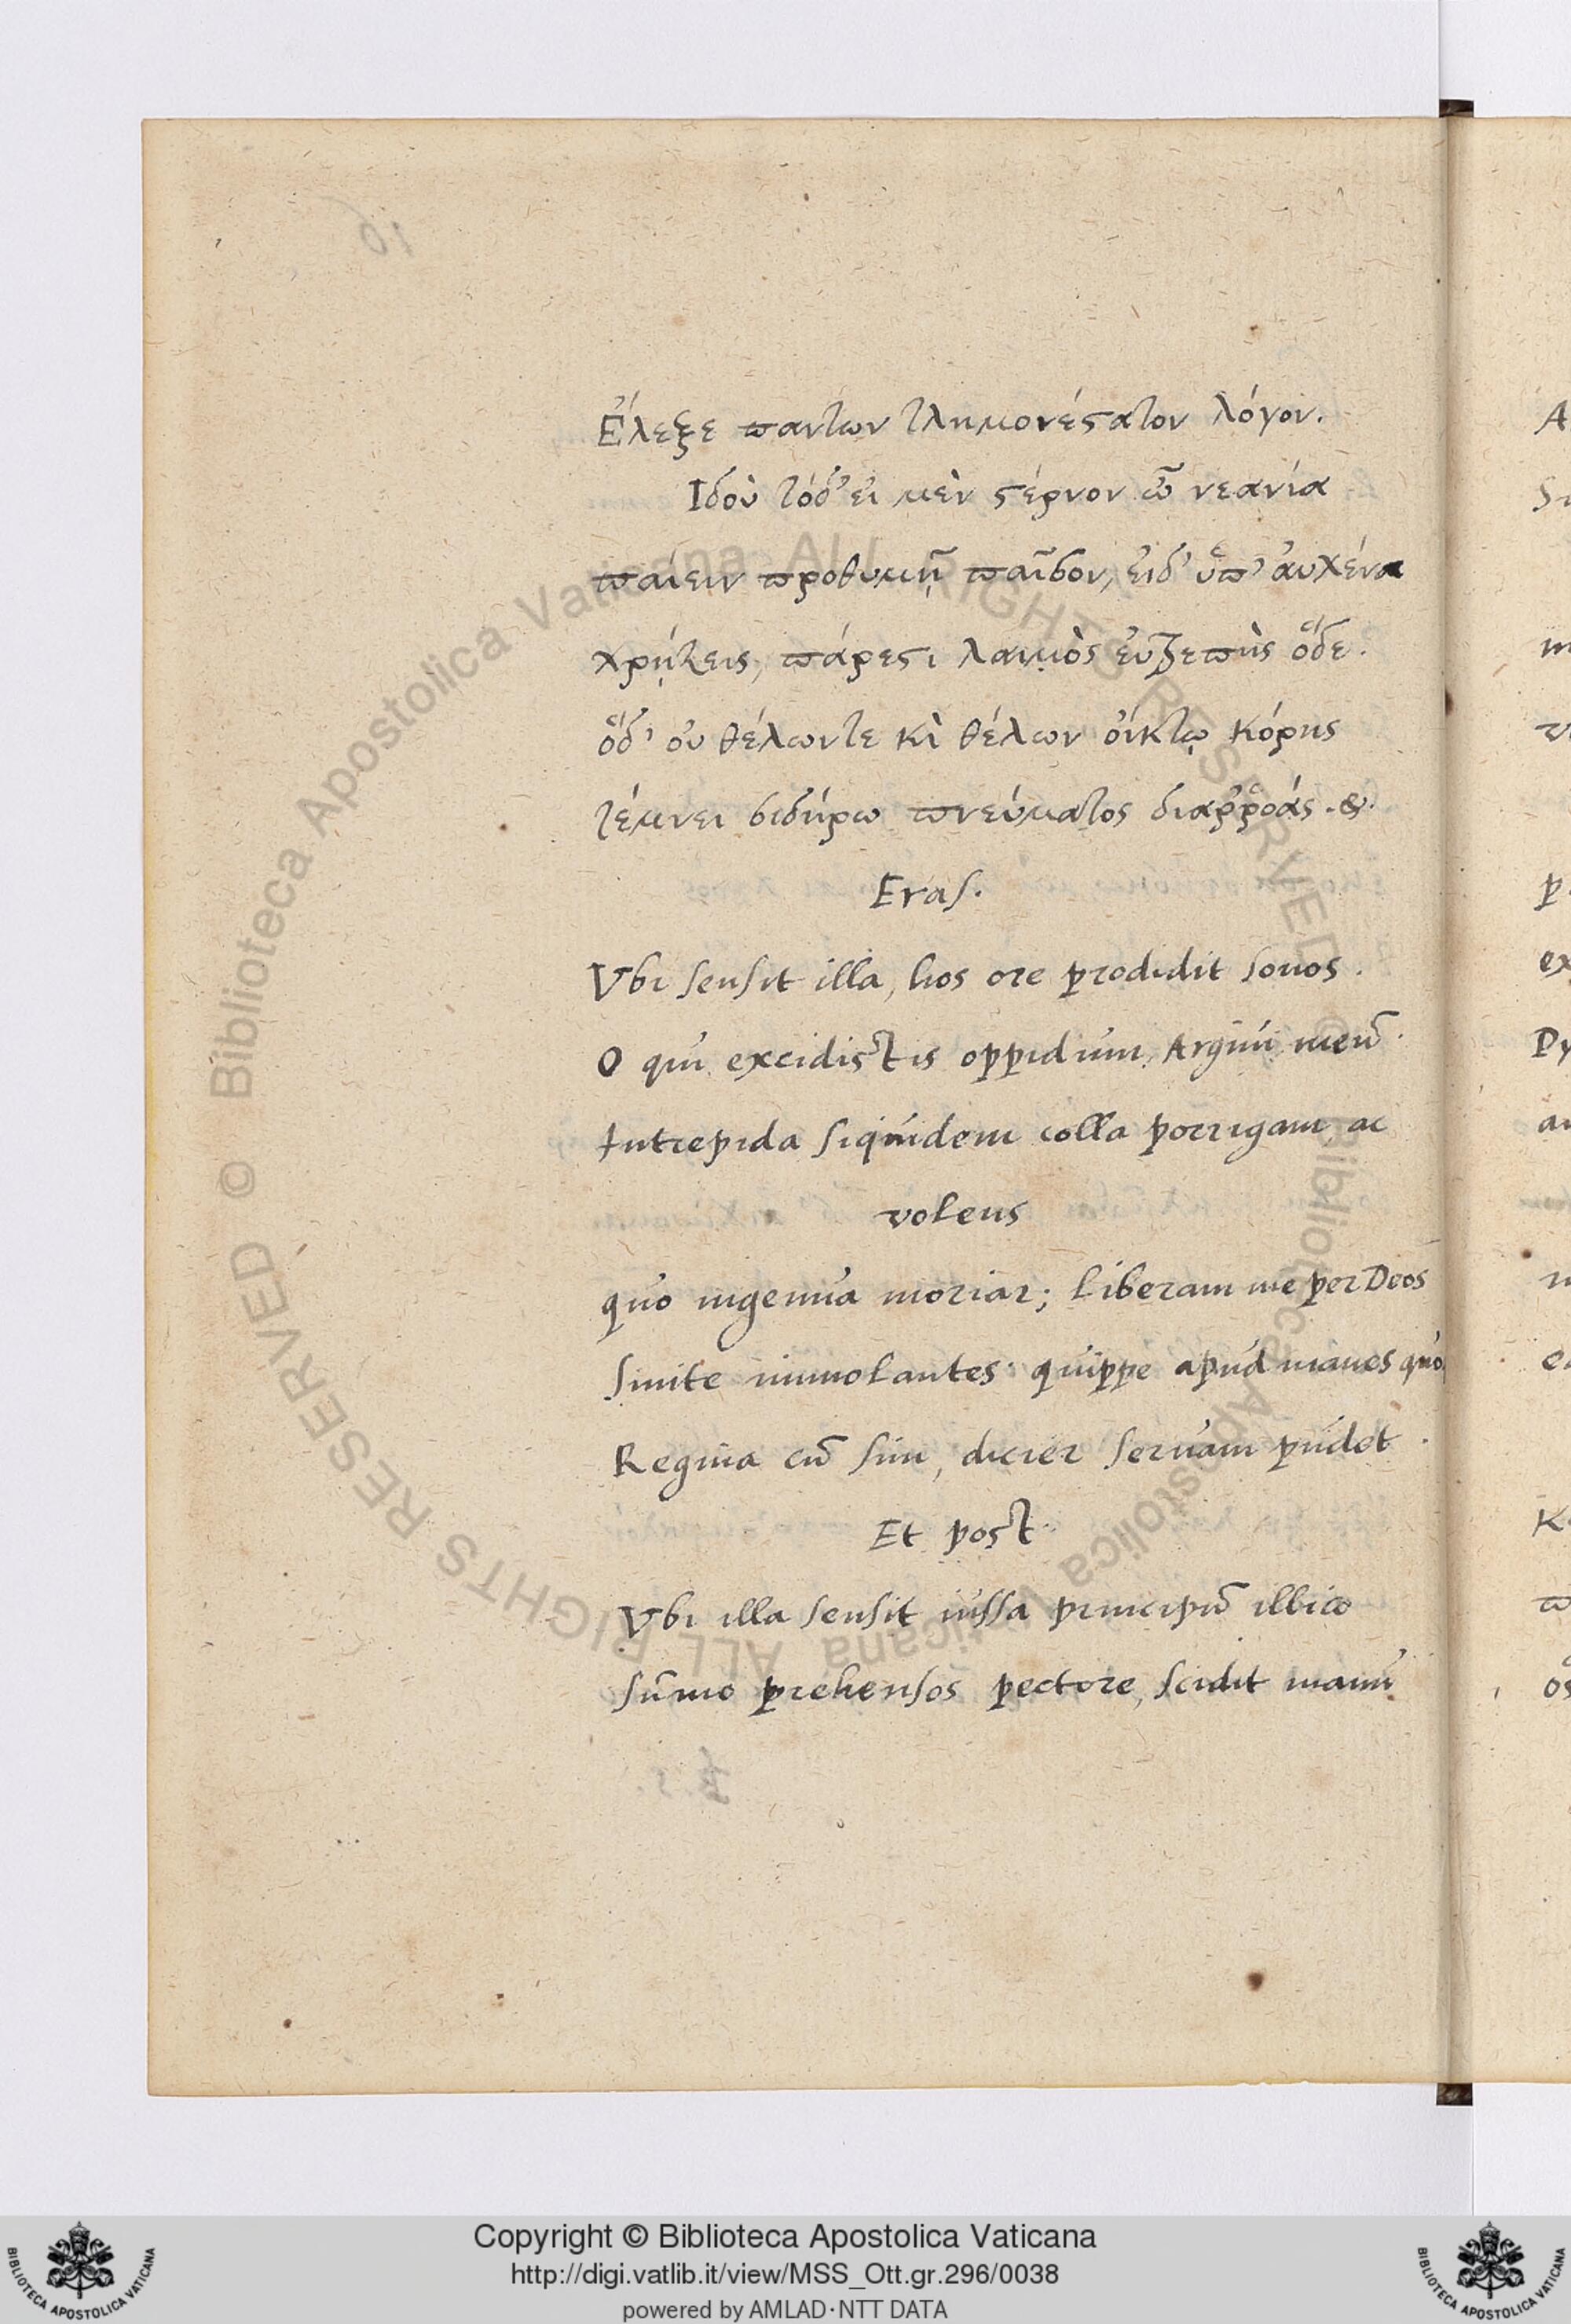 Ἔλεξε παντων τλημονέστατον λόγον.
Ιδοὺ τόδ' ἐι μὲν στέρνον ὦ νεανία
παίειν προθυμῇ παῖσον, ἐιδ' ὑπ' ἀυχένα
χρῄζεις, πάρεστι λαιμὸς ἐυτρεπὴς ὅδε.
ὅδ' ὀυ θέλωντε κὶ θέλων ὀίκτῳ κόρης
τέμνει σιδήρω πνεύματος διαῤῥοάς. &.
Eras.
Vbi sensit illa, hos ore prodidit sonos.
O qui excidistis oppidum Argiui meũ.
Intrepida siquidem colla porrigam, ac
volens
quo ingenua moriar; liberam me per Deos
sinite immolantes: quippe apud manes quoq
Regina cũ sim, dicier seruam pudet.
Et post.
Vbi illa sensit iussa principũ illico
sũmo prehensos pectore, scidit manu
Biblioteca Apostolica Vaticana ALL RIGHTS RESERVED ©
Biblioteca Apostolica Vaticana ALL RIGHTS RESERVED ©
Copyright © Biblioteca Apostolica Vaticana
http://digi.vatlib.it/view/MSS_Ott.gr.296/0038
powered by AMLAD·NTT DATA
BIBLIOTECA APOSTOLICA VATICANA
BIBLIOTECA APOSTOLICA VATICANA